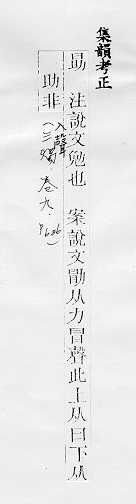 集韻考正
勗 注說文勉也 案說文勖从力冒聲此上从曰下从
助非
入聲
(三燭 卷九. P626)